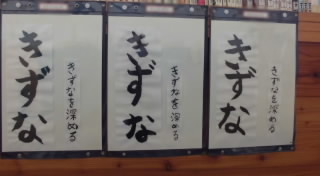 きずな
きずなを深める
きずな
きずなを深める
きずな
きずなを深める